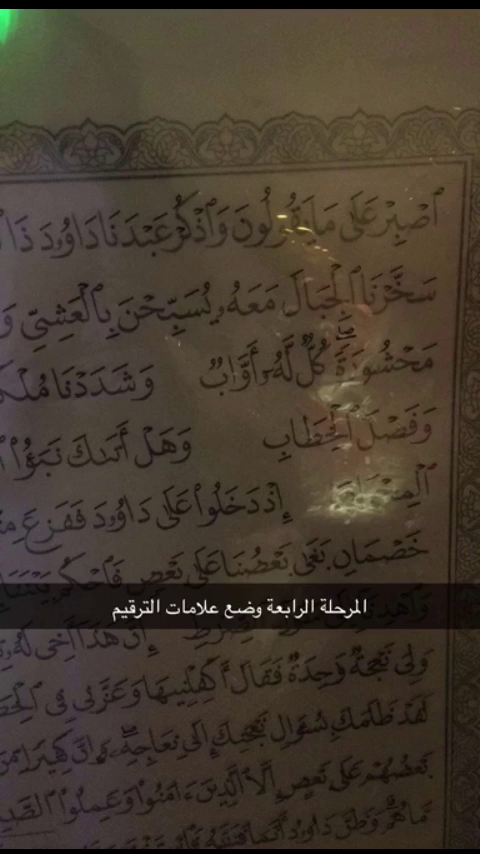 ٱصۡبِرۡ عَلَىٰ مَا يَقُولُونَ وَٱذۡكُرۡ عَبۡدَنَا دَاوُۥدَ ذَا
سَخَّرۡنَا ٱلۡجِبَالَ مَعَهُۥ يُسَبِّحۡنَ بِٱلۡعَشِيِّ وَ
مَحۡشُورَةٗۖ كُلّٞ لَّهُۥٓ أَوَّابٞ وَشَدَدۡنَا مُلۡكَ
وَفَصۡلَ ٱلۡخِطَابِ وَهَلۡ أَتَىٰكَ نَبَؤُاْ
إِذۡ دَخَلُواْ عَلَىٰ دَاوُۥدَ فَفَزِعَ مِنۡ
خَصۡمَانِ بَغَىٰ بَعۡضُنَا عَلَىٰ بَعۡضٖ فَٱحۡكُم بَيۡنَنَا
المرحلة الرابعة وضع علامات الترقيم
إِنَّ هَٰذَآ أَخِي لَهُۥ
وَلِيَ نَعۡجَةٞ وَٰحِدَةٞ فَقَالَ أَكۡفِلۡنِيهَا وَعَزَّنِي فِي
لَقَدۡ ظَلَمَكَ بِسُؤَالِ نَعۡجَتِكَ إِلَىٰ نِعَاجِهِۦۖ وَإِنَّ كَثِيرٗا مِّنَ
بَعۡضُهُمۡ عَلَىٰ بَعۡضٍ إِلَّا ٱلَّذِينَ ءَامَنُواْ وَعَمِلُواْ
مَّا هُمۡۗ وَظَنَّ دَاوُۥدُ أَنَّمَا فَتَنَّٰهُ